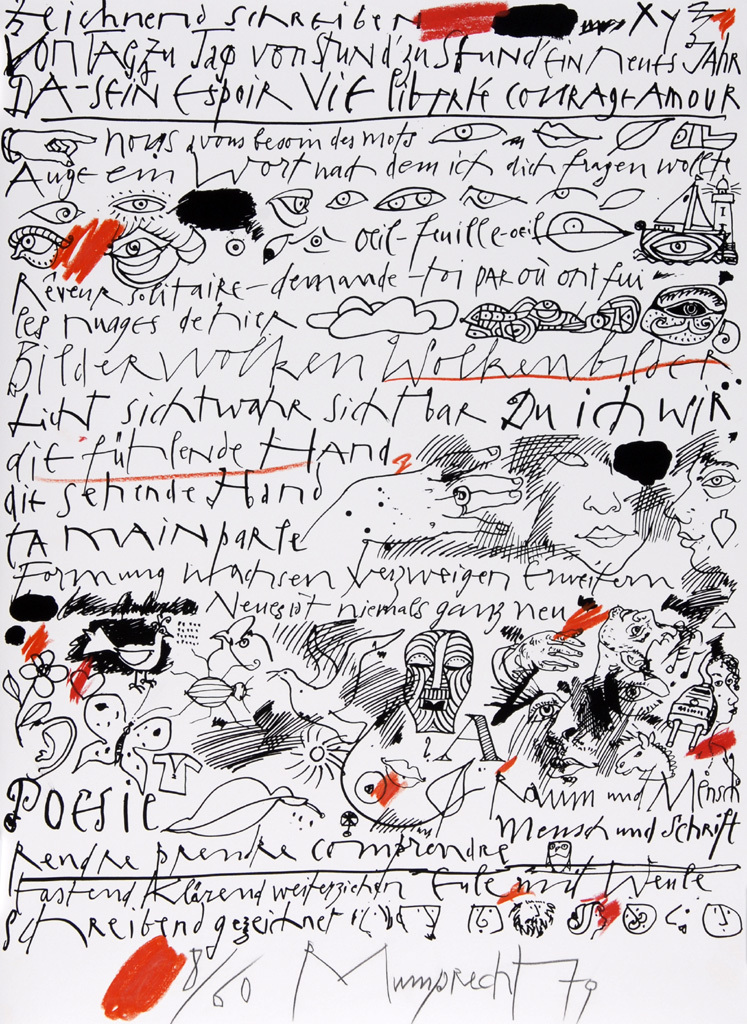 zeichnend schreiben XYZ
von Tag zu Tag von Stund' zu Stund' ein neues Jahr
DA-SEIN Espoir Vie liberté courage Amour
nous avons besoin des mots
Auge ein Wort nach dem ich dich fragen wollte
oeil-feuille-oeil
Rêveur solitaire-demande-toi par où ont fui
les nuages de hier
Bilderwolken Wolkenbilder
Licht sichtwahr sichtbar Du ich wir
die fühlende Hand
die sehende Hand
ta main parle
Formung wachsen verzweigen Erweitern
Neues ist niemals ganz neu
A
Poesie
Raum und Mensch
Mensch und Schrift
Rendre prendre comprendre
tastend klärend weiterziehen Eule mit Weule
schreibend gezeichnet
8/60 Mumprecht 79